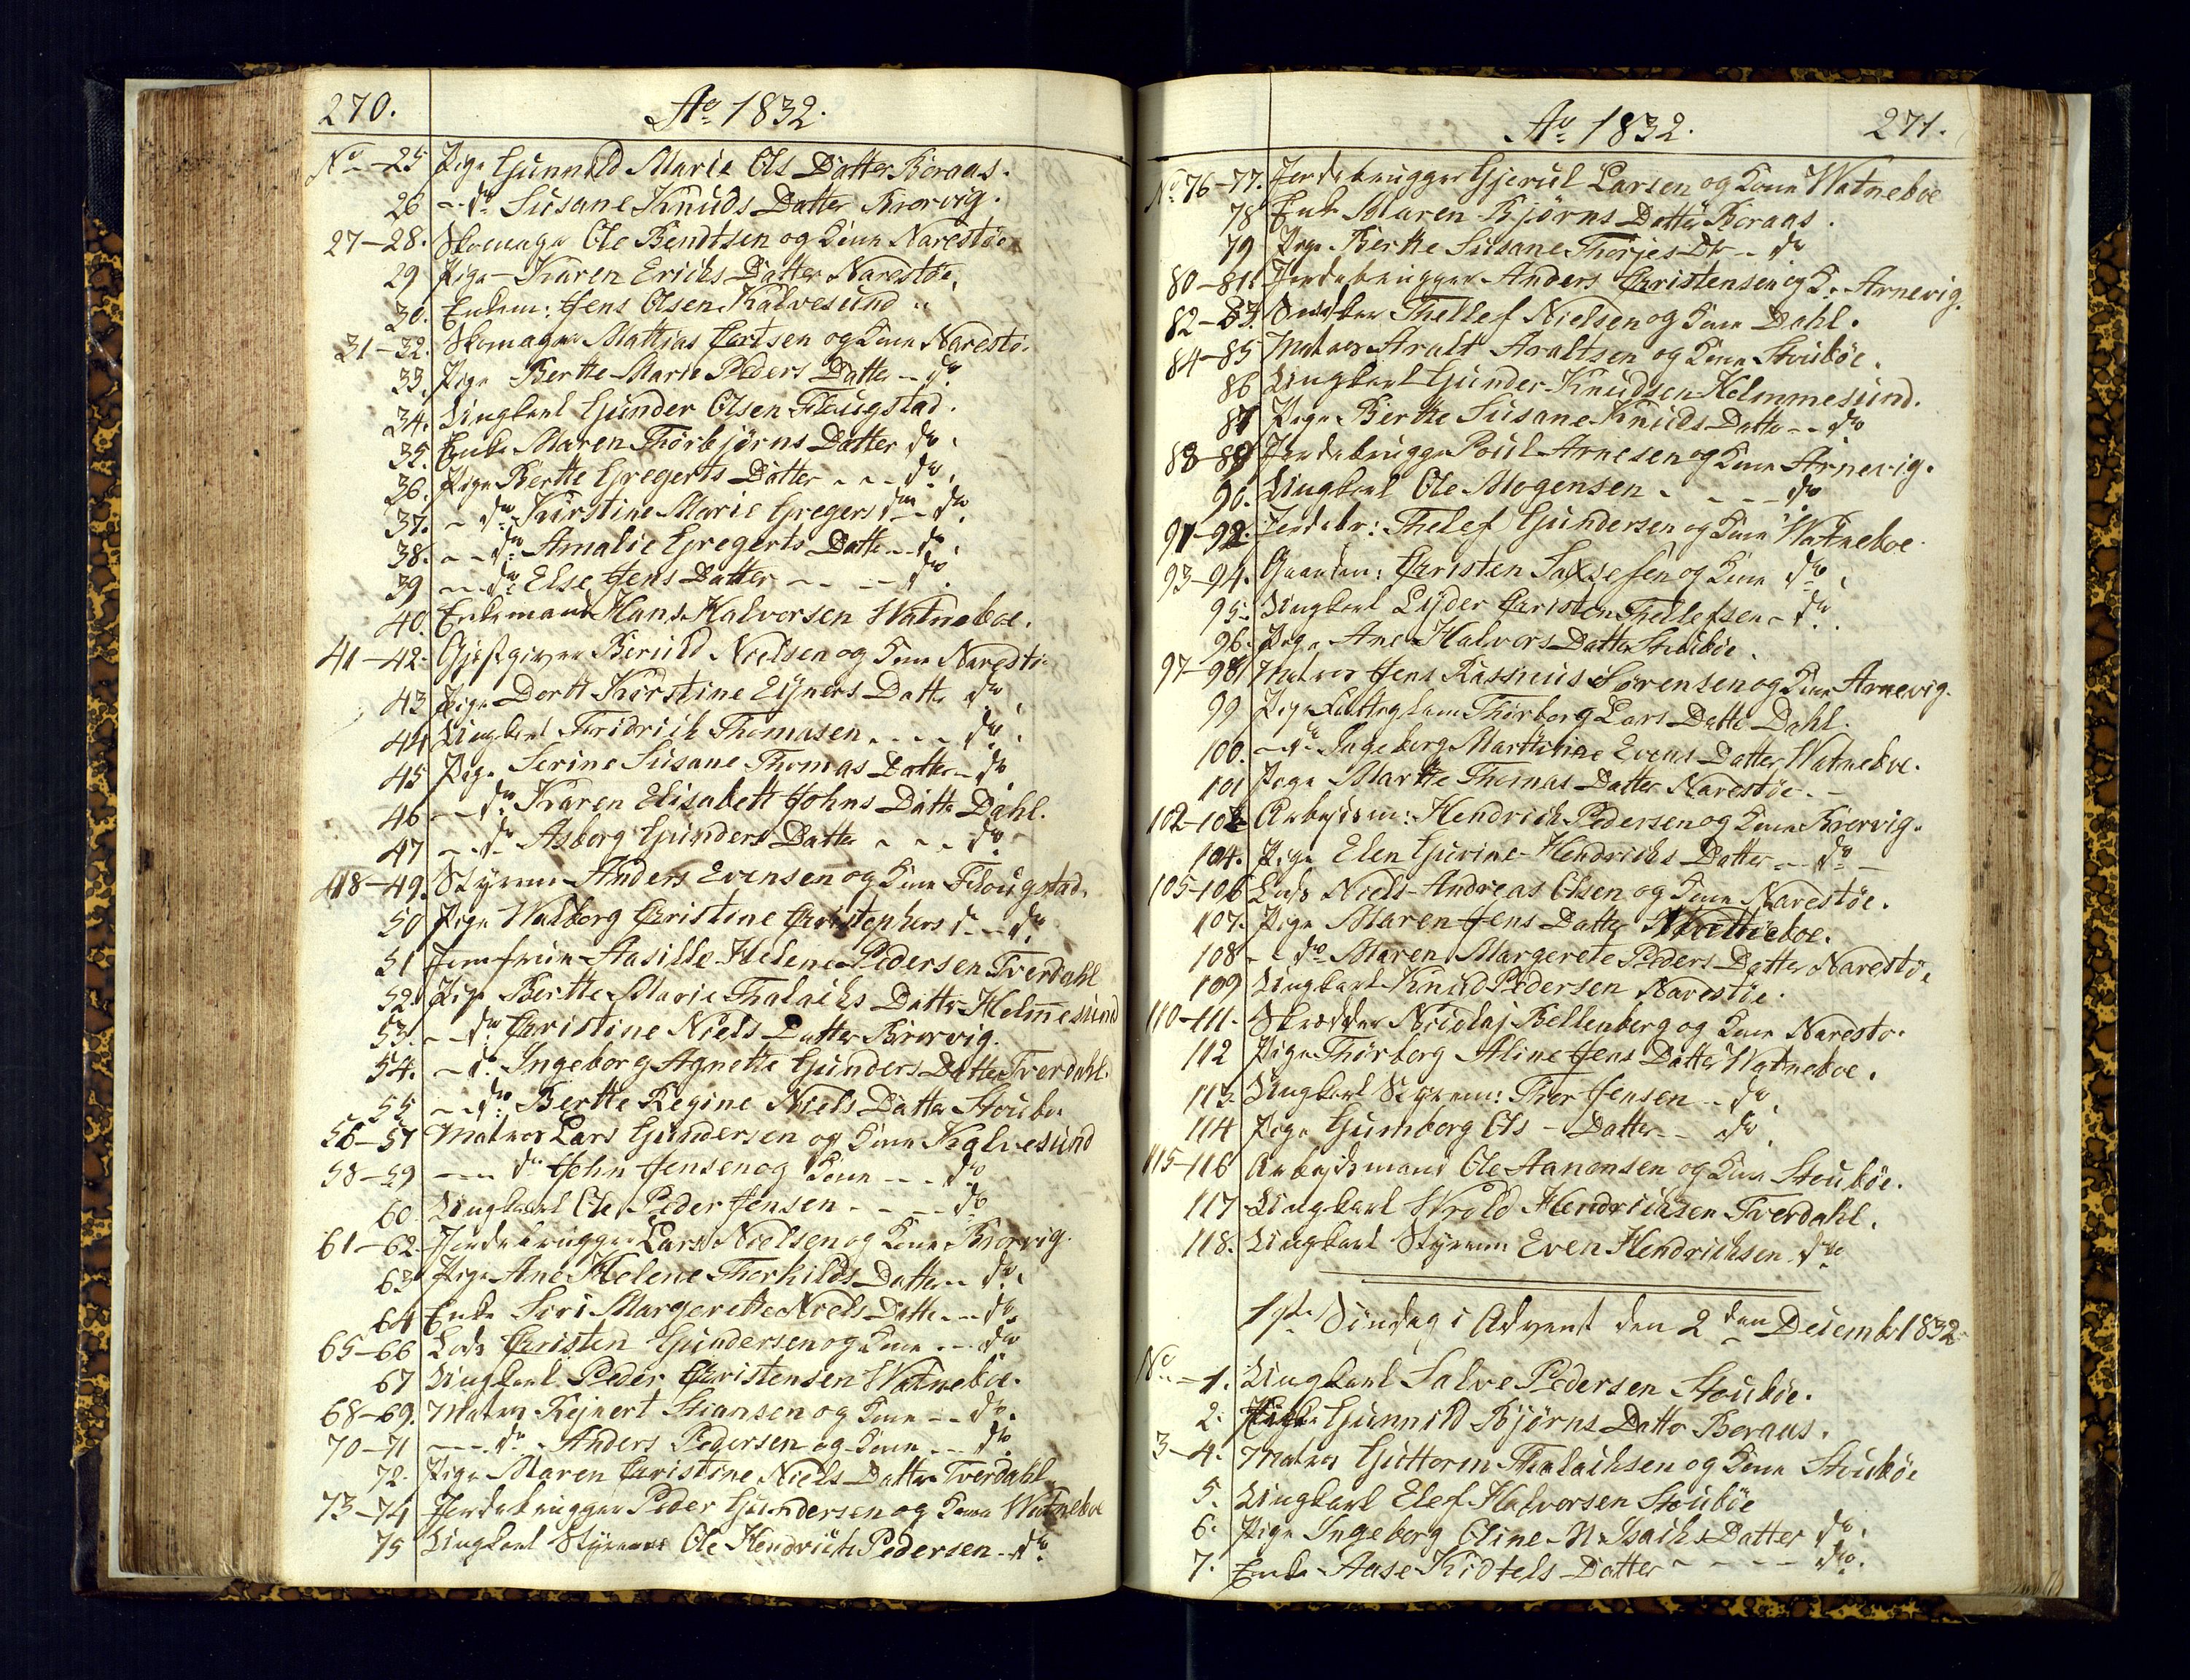 270.
Ao 1832.
No -25 Pige Gunnild Marie Ols Datter Boraas.
26 - do Susane Knuds Datter Krorvig.
27-28. Skomager Ole Bendtsen og Kone Narestøe
29 Pige - Karen Erichs Datter Narestøe,
30. Enkem: Jens Olsen Kalvesund
31-32. Skomager Mattias Certsen og Kone Narestø.
33. Pige Berthe Marie Peders Datter - do
34. Ungkarl Gunder Olsen Flougstad.
35. Enke Maren Thorbjørns Datter do.
36. Pige Berthe Gregerts Datter - - - do.
37. - do Kirstine Marie Gregers dtr do.
38. - - do Amalie Gregerts Datter - do.
39 - - do Else Jens Datter - - - do.
40. Enkemand Hans Halvorsen Watneboe.
41-42. Gjestgiver Beruld Nielsen og Kone Narestø.
43 Pige Dorth Kirstine Ejners Datter do.
44 Ungkarl Fridrich Thomasen - - - do.
45 Pige Serine Susane Thomas Datter - do
46 - - do Karen Elisabeth Johns Datter Dahl.
47 - - do Asborg Gunders Datter - - - do
48-49. Styrm Anders Evensen og Kone Flougstad.
50 Pige Walborg Christine Christophers d. - - do.
51 Jomfrue Aasille Helene Pedersen Tverdahl
52. Pige Berthe Marie Thalachs Datter Helmesund
53. - - do Christine Niels Datter Krorvig.
54. - do. Ingeborg Agnethe Gunders Datter Tverdahl.
55 - - do: Berthe Regine Niels Datter Stoubøe
56-57 Matros Lars Gundersen og Kone Kalvesund
58-59 - - do John Jensen og Kone - - do
60 Ungkarl Ole Peder Jensen - - - do
61-62. Jordebrugger Lars Nielsen og Kone Krorvig.
63 Pige Ane Helene Thorkilds Datter - do.
64 Enke Siri Margrethe Niels Datter - - do.
65-66 Lods Christen Gundersen og Kone - - do
67 Ungkarl Peder Christensen Watneboe.
68-69. Matros Rejnert Stiansen og Kone - - do.
70-71 - - - do - Anders Pedersen og Kone - - do.
72. Pige Maren Christine Niels Datter Tverdahl
73-74 Jordebrugger Peder Gundersen og Kone Watneboe
75 Ungkarl Styrmand Ole Hendrich Pedersen - do.
Ao 1832.
271.
No 76-77. Jordebrugger Gjeruld Larsen og Kone Watneboe
78 Enke Maren Bjørns Datter Boraas.
79 Pige Berthe Susane Thorjes Dtr - do
80-81 Jordebrugger Anders Christensen og K. Arnevig.
82-83. Snedker Thellef Nielsen og Kone Dahl.
84-85 Matros Aralt Araltsen og Kone Stoubøe.
86 Ungkarl Gunder Knudsen Helmmesund.
87 Pige Berthe Susane Knuds Datter - - do
88-89 Jordebrugger Poul Arnesen og Kone Arnevig.
90. Ungkarl Ole Mogensen - - - - do
91-92. Jordebr: Thelef Gundersen og Kone Watneboe
93-94. Gaardm: Christen Saxsesen og Kone do.
95. Ungkarl Lyder Christen Thellefsen - do.
96. Pige Ane Halvors Datter Stoubøe.
97-98 Matros Jens Rasmus Sørensen og Kone Arnevig.
99 Pige Thorborg Lars Datter Dahl.
100. - - do Ingeborg Marthine Evens Datter Watneboe.
101 Pige Marthe Thomas Datter Narestøe. -
102-103 Arbejdsm: Hendrich Pedersen og Kone Krorvig.
104. Pige Elen Gurine Hendrichs Datter - - do -
105-106 Lods Niels Andreas Olsen og Kone Narestøe.
107. Pige Maren Jens Datter Watneboe.
108 - - do Maren Margerete Peders Datter Narestø.
109 Ungkarl Knud Pedersen Narestøe.
110-111. Skrædder Nicolaj Bellenberg og Kone Narestø.
112 Pige Thorborg Aline Jens Datter Watneboe.
113 Ungkarl Styrm: Thor Jensen - - do
114 Pige Gumborg Ols - Datter - - do
115-116 Arbejdsmand Ole Aanonsen og Kone Stoubøe.
117 Ungkarl Wrold Hendrichsen Tverdahl.
118. Ungkarl Styrm Even Hendrichsen do
1ste Søndag i Advent den 2den Decembr 1832
No - 1. Ungkarl Salve Pedersen Stoubøe.
2. Pige Gunnild Bjørns Datter Boraas.
3-4. Matros Guttorm Thalachsen og Kone Stoubøe
5. Ungkarl Elef Halvorsen Stoubøe
6. Pige Ingeborg Oline - N. Isachs Datter do.
7. Enke Aase Kidtels Datter - - - - do.